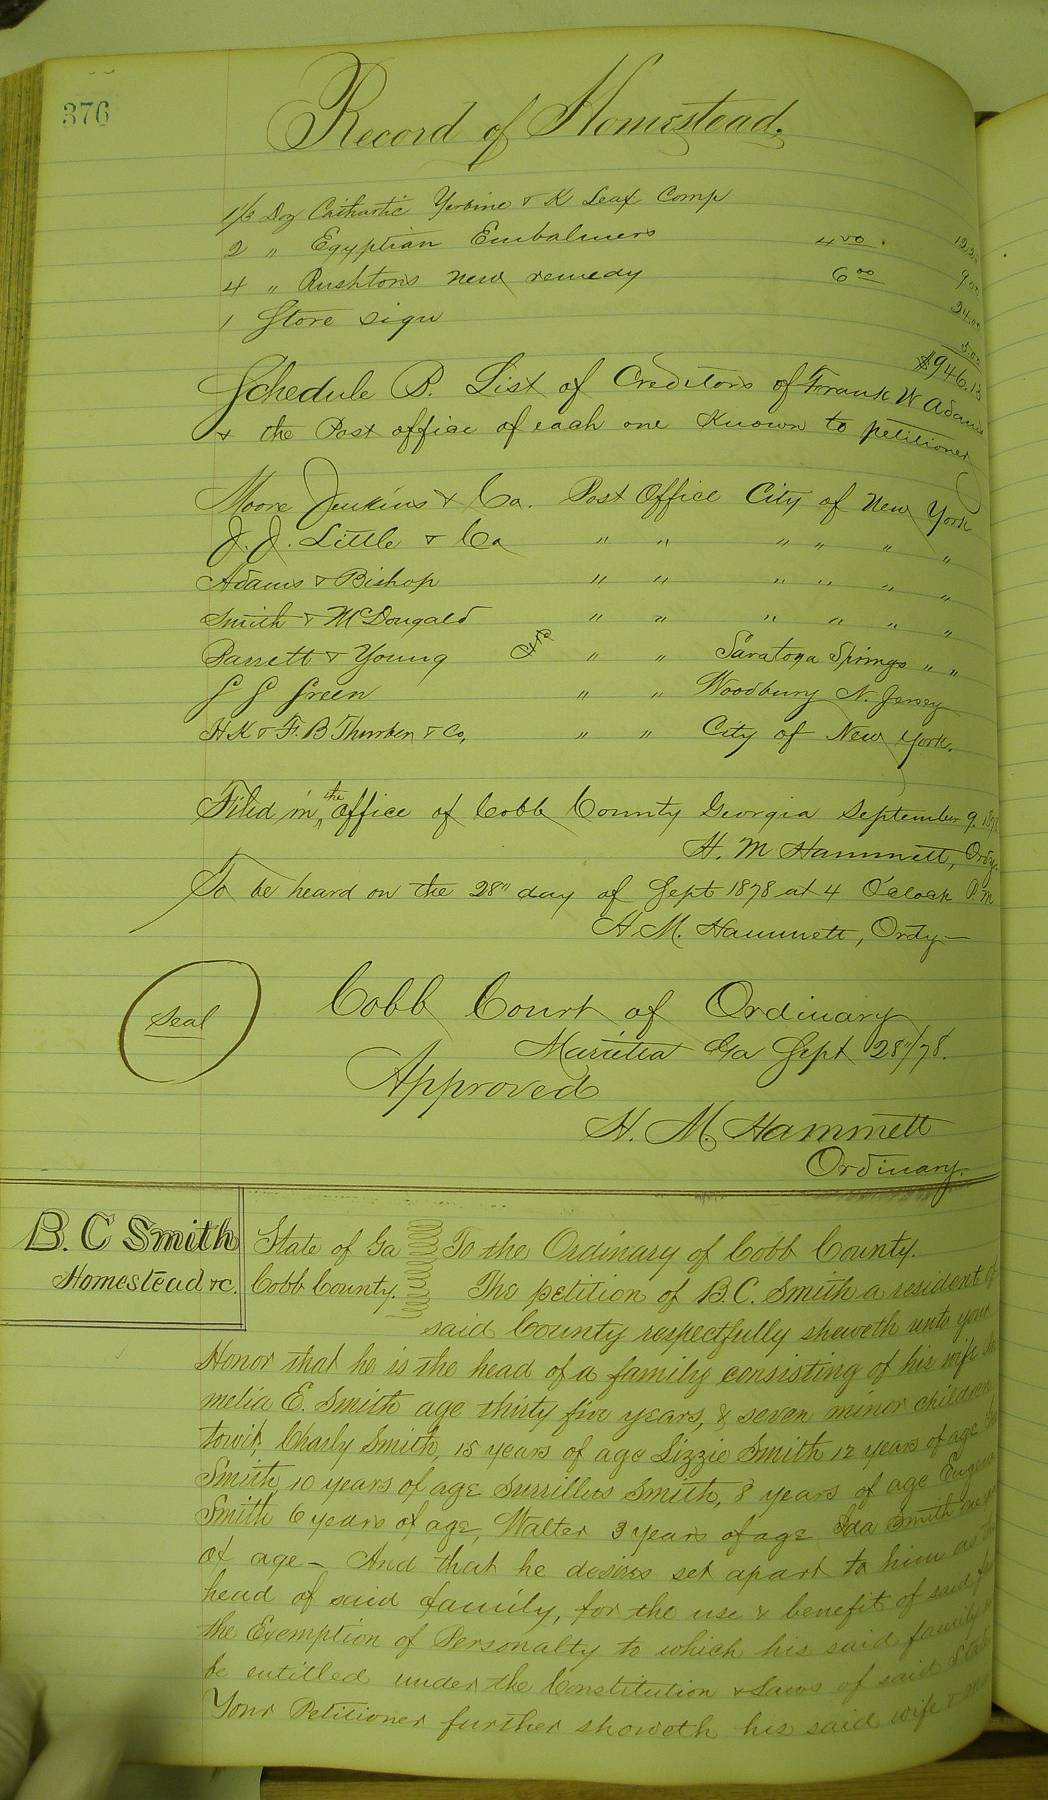 376
Record of Homestead.
1/3 Doz Cathartic Yerbine & K Leaf Comp
2 " Egyptian Embalmers 4 00 12.2
4 " Rushton's new remedy 6 00 9.00
1 Store Sign 24.00
5.00
$946.13
Schedule B. List of Creditors of Frank W Adams
& the Post office of each one Known to petitioner
Moore Jenkins & Co. Post Office City of New York
J. J. Little & Co " " " " " "
Adams & Bishop " " " " " "
Smith & McDougald " " " " " "
Parrett & Young " " Saratoga Springs " "
G G Green " " Woodbury N. Jersey
H K & F. B Thurber & Co, " " City of New York.
Filed in the office of Cobb County Georgia September 9. 187
H. M Hammett, Ordy.
To be heard on the 28" day of Sept 1878 at 4 O'clock P.M
H. M. Hammett, Ordy
Seal
Cobb Court of Ordinary
Marietta Ga Sept 28"/78.
Approved
H. M. Hammett
Ordinary.
B. C Smith
Homestead &c.
State of Ga To the Ordinary of Cobb County.
Cobb County. The petition of B. C. Smith a resident of
said County respectfully sheweth unto your
Honor that he is the head of a family consisting of his wife
melia E. Smith age thirty five years, & seven minor children
towit, Charly Smith, 15 years of age Lizzie Smith 12 years of age
Smith, 10 years of age Surrillus Smith, 8 years of age Eugene
Smith 6 years of age, Walter 3 years of age Ida Smith one
of age - And that he desires set apart to him as the
head of said family, for the use & benefit of said
the Exemption of Personalty to which his said family
be entitled under the Constitution & Laws of said State
Your Petitioner further showeth his said wife &